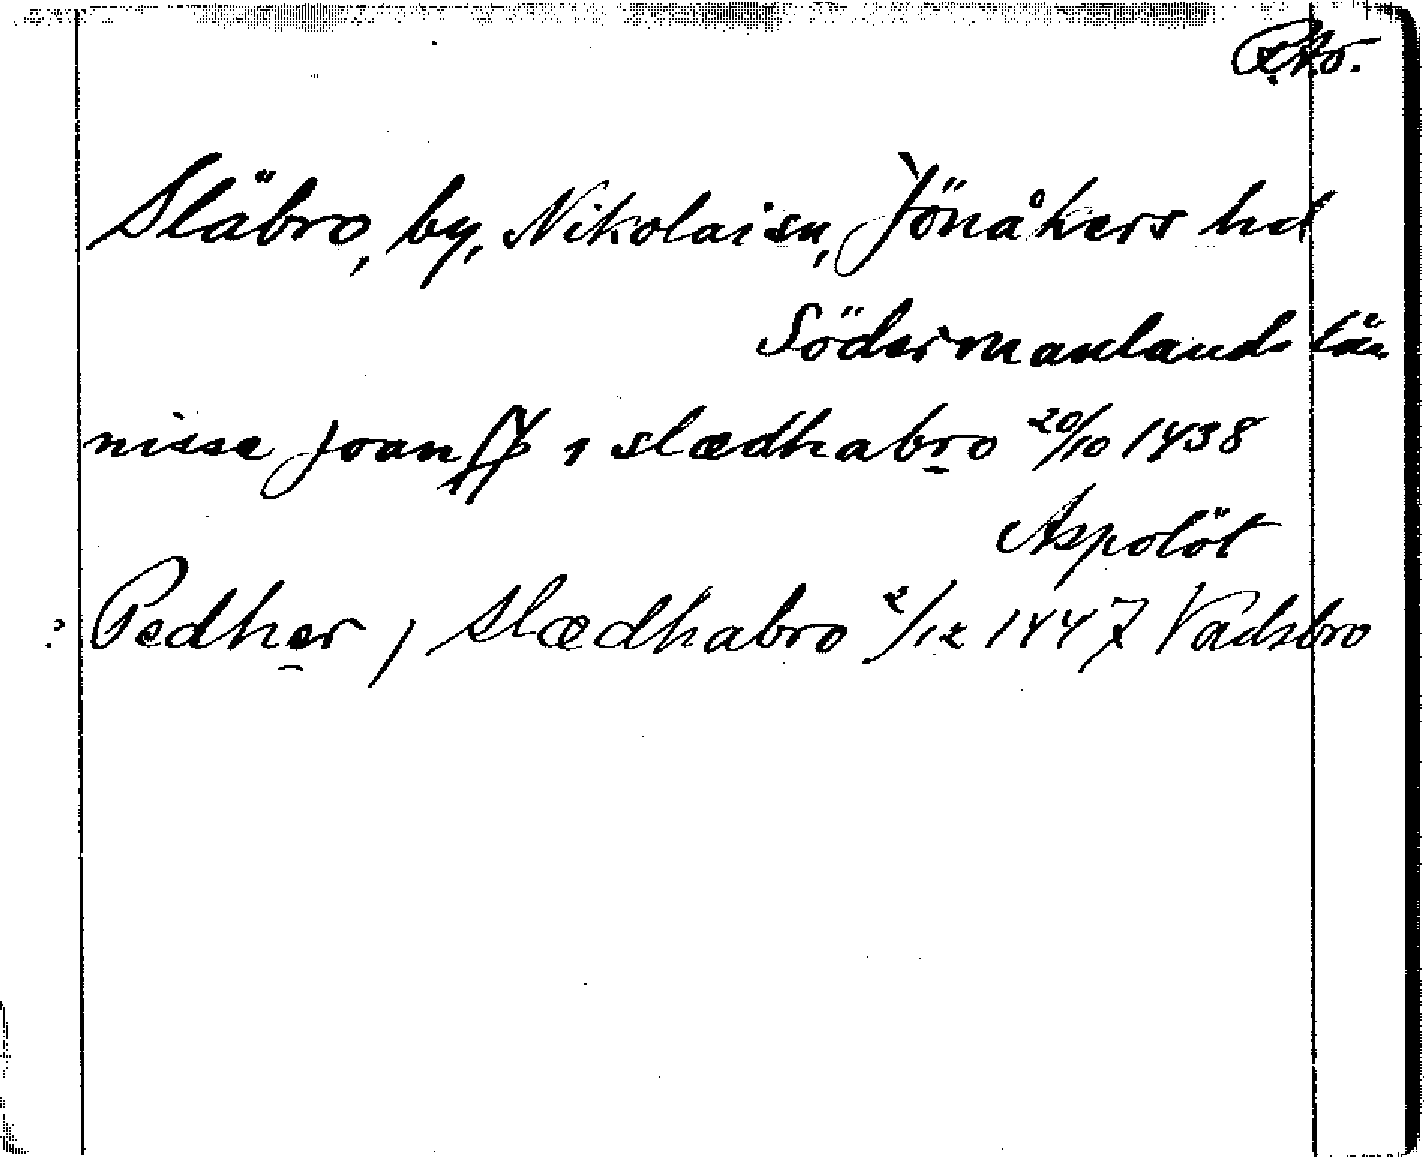 Släbro, by, Nikolai sn, Jönåkers hd
Södermanlands län
nisse joan i slædhabro 20/10 1438
Aspolöt
? Pedher j Slædhabro 2/12 1447 Vadsbro